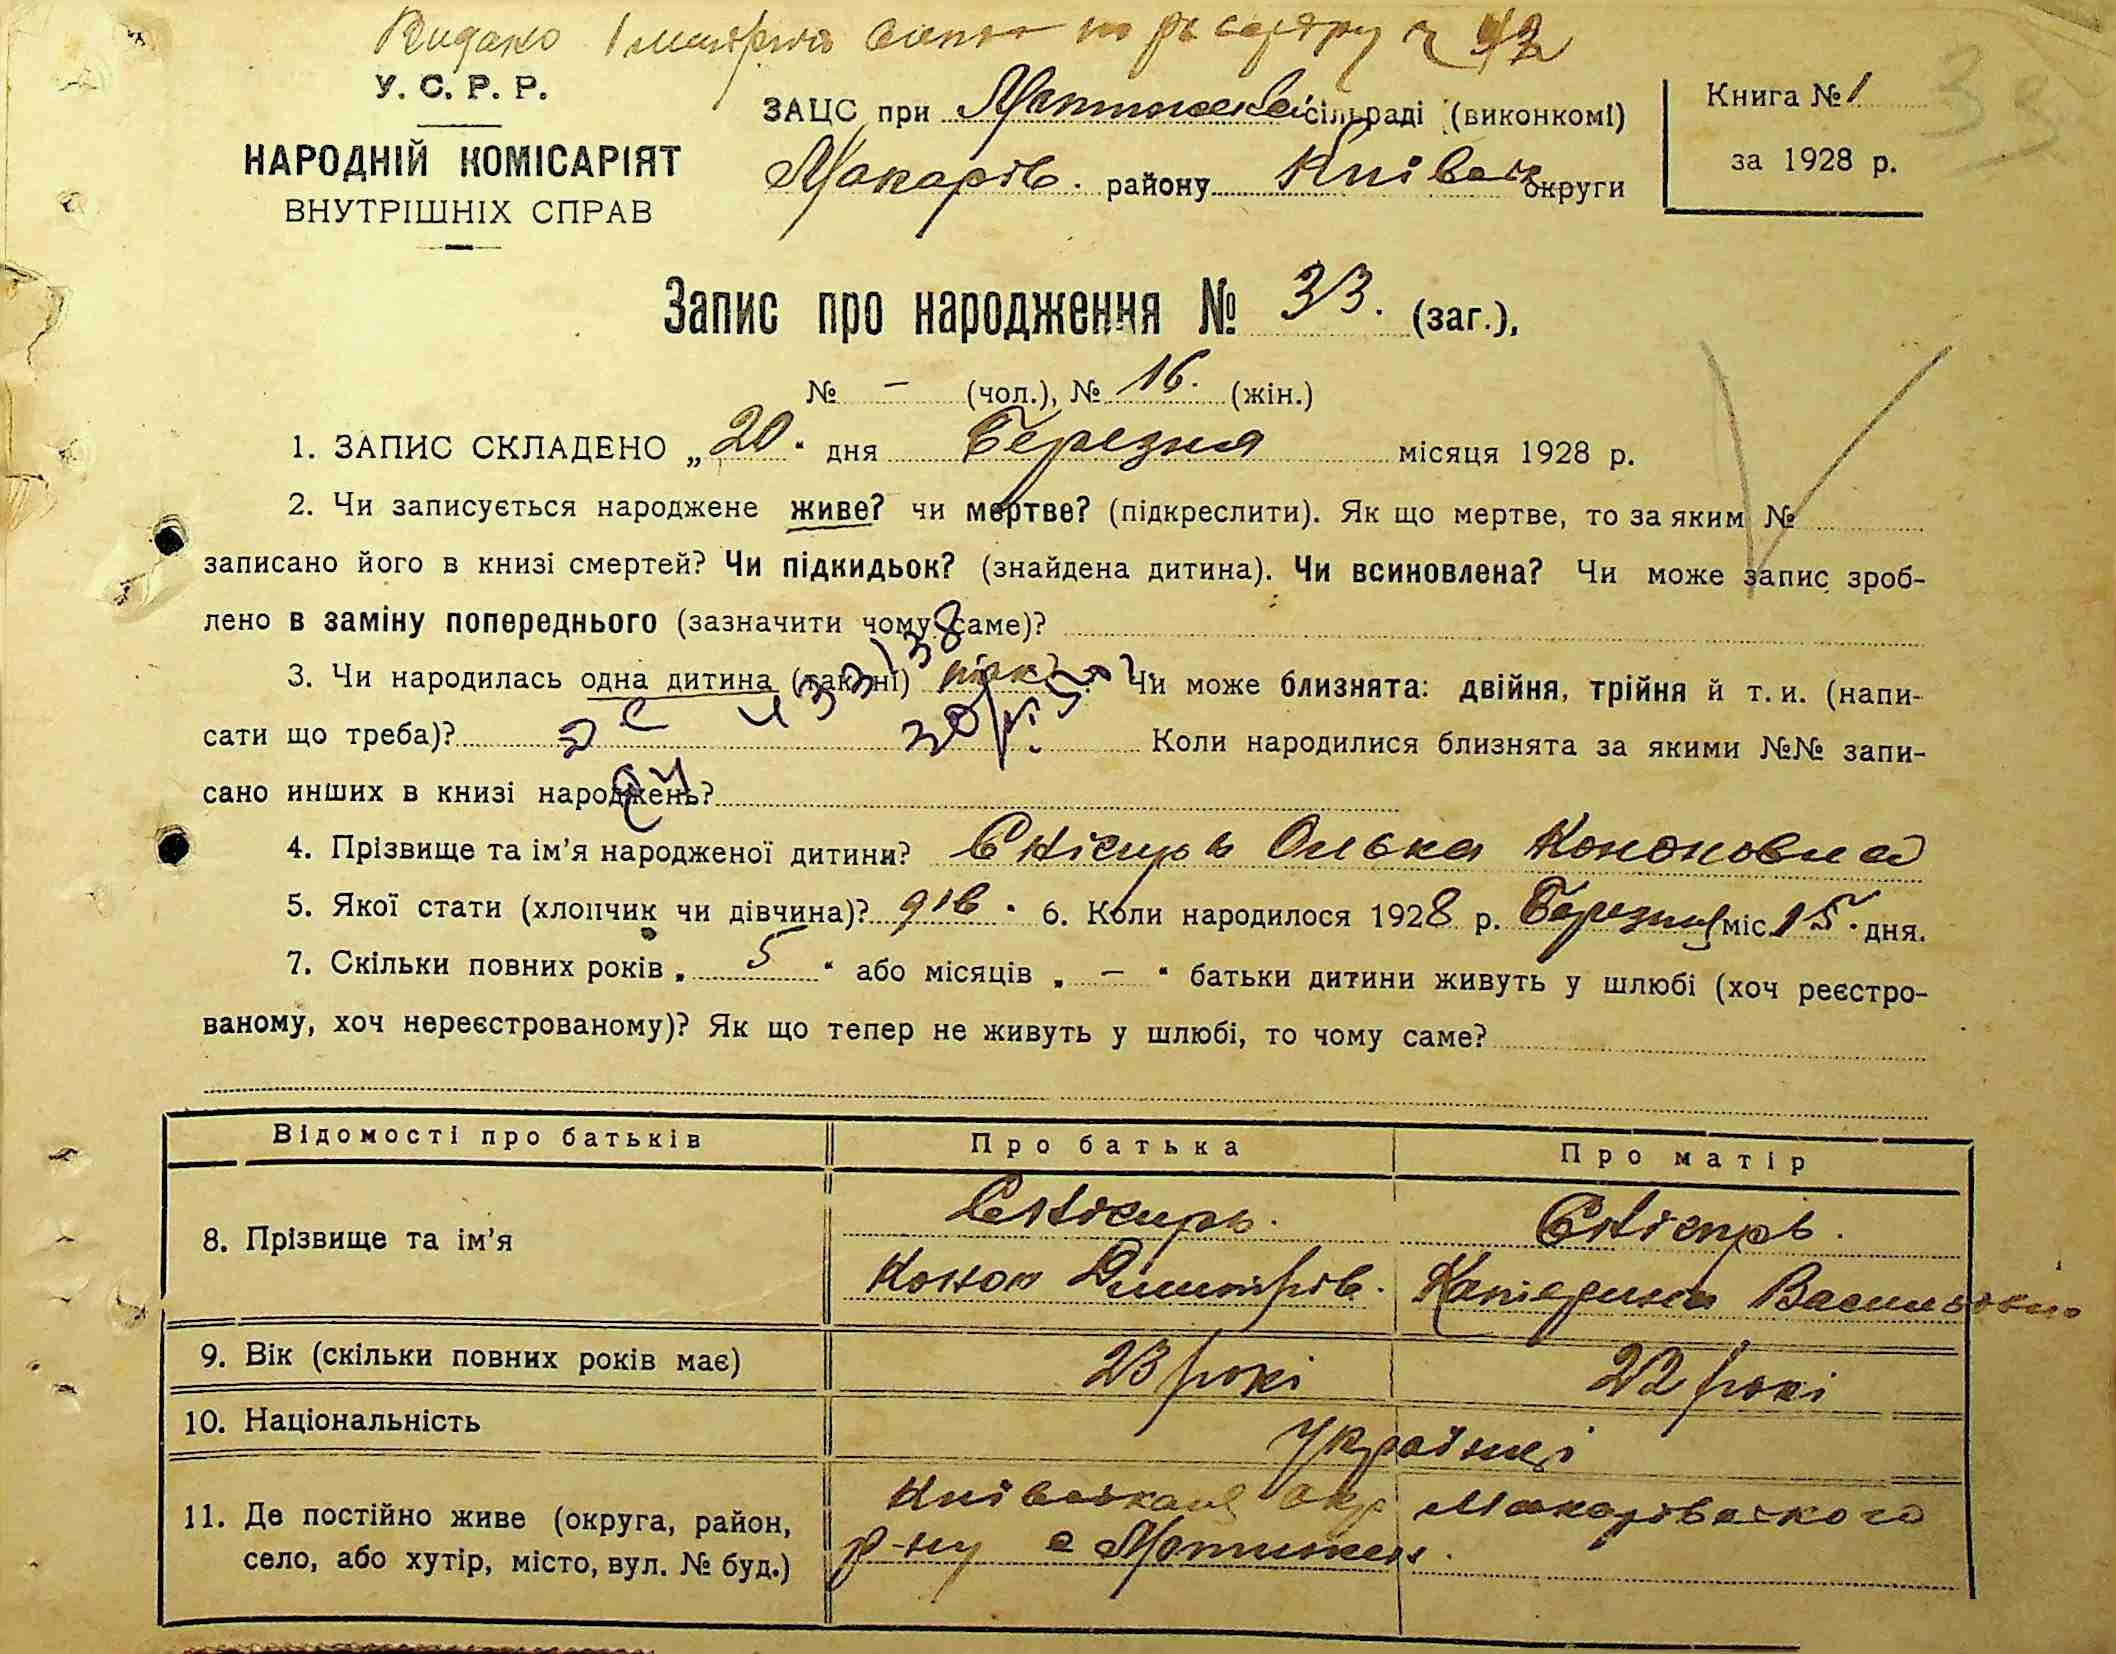 Видано
У. С. Р. Р.
НАРОДНІЙ КОМІСАРІЯТ
ВНУТРІШНІХ СПРАВ
ЗАЦС при Мотижеській сільраді (виконкомі)
Макарів. району Київськ округи
Книга № 1
за 1928 р.
33
Запис про народження № 33. (заг.),
№ — (чол.), № 16. (жін.)
1. ЗАПИС СКЛАДЕНО „20“ дня Березня місяця 1928 р.
2. Чи записується народжене живе? чи мертве? (підкреслити). Як що мертве, то за яким №
записано його в книзі смертей? Чи підкидьок? (знайдена дитина). Чи всиновлена? Чи може запис зроб-
лено в заміну попереднього (зазначити чому саме)?
3. Чи народилась одна дитина (так, ні) Чи може близнята: двійня, трійня й т. и. (напи-
сати що треба)? Коли народилися близнята за якими №№ запи-
сано инших в книзі народжень?
4. Прізвище та ім’я народженої дитини? Снісирь Олька Кононовна
5. Якої стати (хлопчик чи дівчина)? дів. 6. Коли народилося 1928 р. Березня міс. 15. дня.
7. Скільки повних років „ 5 “ або місяців „ — “ батьки дитини живуть у шлюбі (хоч реєстро-
ваному, хоч нереєстрованому)? Як що тепер не живуть у шлюбі, то чому саме?
Відомості про батьків Про батька Про матір
8. Прізвище та ім’я Снісирь. Снісирь.
Конон Димитрів. Катерина Васильовна
9. Вік (скільки повних років має) 23 рокі 22 рокі
10. Національність Українці
11. Де постійно живе (округа, район, Київської окр Макарівського
село, або хутір, місто, вул. № буд.) р-ну с Мотижен.